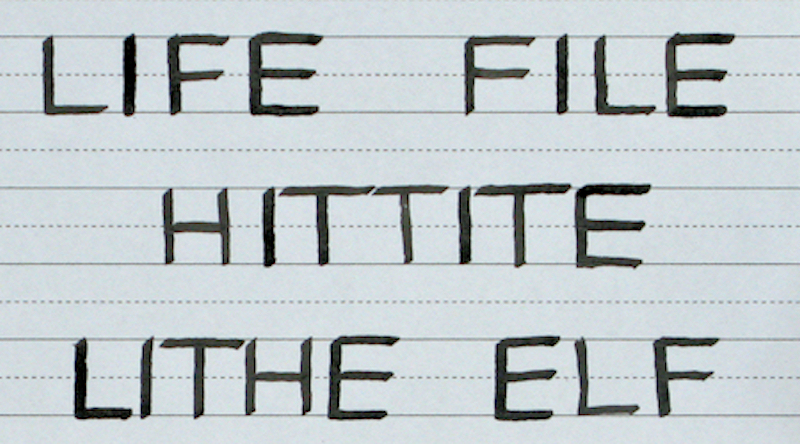 LIFE FILE
HITTITE
LITHE ELF